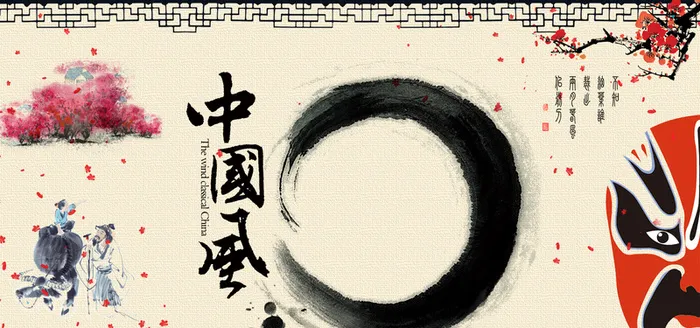 中國風
The wind classical China
不知
細葉誰
裁出
二月春風
似剪刀